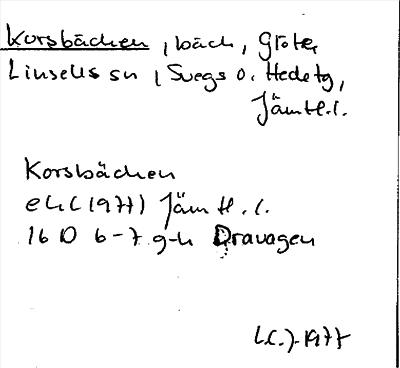 Korsbäcken, bäck, Gröten
Linsells sn, Svegs o. Hede tg,
Jämtl.l.
Korsbäcken
ek (1977) Jämtl.l.
16 D 6-7 g-h Dravagen
1977